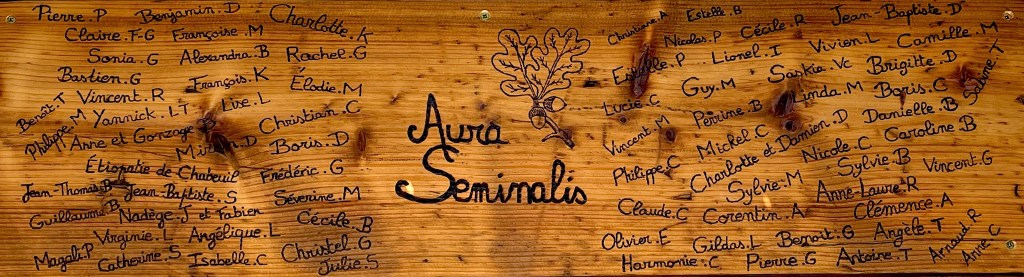 Pierre.P Benjamin.D Charlotte.K
Claire.F-G Françoise.M
Sonia.G Alexandra.B Rachel.G
Bastien.G François.K Élodie.M
Benoît.T Vincent.R Lise.L
Philippe.M Yannick.LT Christian.C
Anne et Gonzague
Boris.D
Étiopatie de Chabeuil Frédéric.G
Jean-Thomas.B Jean-Baptiste.S Séverine.M
Guillaume.B Nadège.J et Fabien Cécile.B
Virginie.L Angélique.L
Magali.P Catherine.S Isabelle.C Christel.G
Julie.S
Aura
Seminalis
Christiane.A Estelle.B Jean-Baptiste.D
Nicolas.P Cécile.R Camille.M
Estelle.P Lionel.I Vivien.L
Guy.M Saskia.Vc Brigitte.D Sabine.T
Lucie.C Perrine.B Linda.M Boris.C
Vincent.M Michel.C Danielle.B
Philippe.C Charlotte et Damien.D Nicole.C Caroline.B
Sylvie.M Sylvie.B Vincent.G
Claude.C Corentin.A Anne-Laure.R
Clémence.A
Olivier.E Gildas.L Benoit.G Angèle.T Arnaud.R
Harmonie.C Pierre.G Antoine.T Anne.C